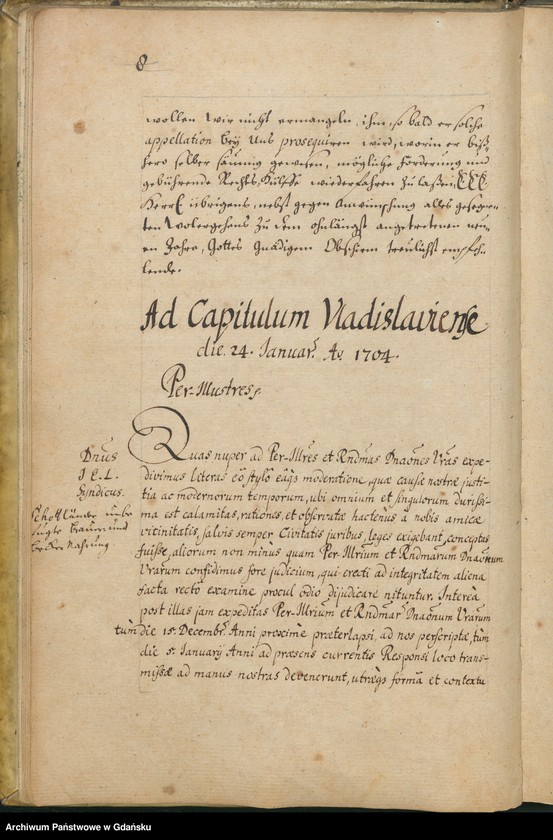 8
wollen wir nicht ermangeln, ihm, so bald er solche
appellation bey Uns prosequiren wird, worin er biß-
hero selber säumig gewesen, mögliche förderung und
gebührende Rechts-Hülffe wiederfahren zu laßen,
Herrl übrigens, nebst gegen Anwünschung alles gesegne-
ten Wolergehens zu dem ohnlängst angetretenen neu-
en Jahre, Gottes Gnädigem Obschirm treulichst empfeh-
lende.
Ad Capitulum Vladislaviense
die 24. Januar. Ao 1704.
Per-Illustres,
Dnus
J. E. L.
Syndicus.
Schottländer unbe-
fugte Brauer und
Quas nuper ad Per-Illres et Rndmas Dnaones Vras expe-
divimus literas eo stylo eaqs moderatione, quae causae nostrae justi-
tia ac modernorum temporum, ubi omnium et singulorum durissi-
ma est calamitas, rationes, et observatae hactenus à nobis amicae
vicinitatis, salvis semper Civitatis juribus, leges exigebant, conceptas
fuisse, aliorum non minus quam Per Illrium et Rndmarum Dnaonum
Vrarum confidimus fore judicium, qui creati ad integritatem aliena
facta recto examine procul odio dijudicare nituntur. Interea
post illas jam expeditas Per-Illrium et Rndmar. Dnaonum Vrarum
tùm die 15. Decembr. Anni proximè praeterlapsi, ad nos perscriptae, tùm
die 5. January Anni ad praesens currentis Responsi loco trans-
missae ad manus nostras devenerunt, utraeqs formâ et contextu
Archiwum Państwowe w Gdańsku